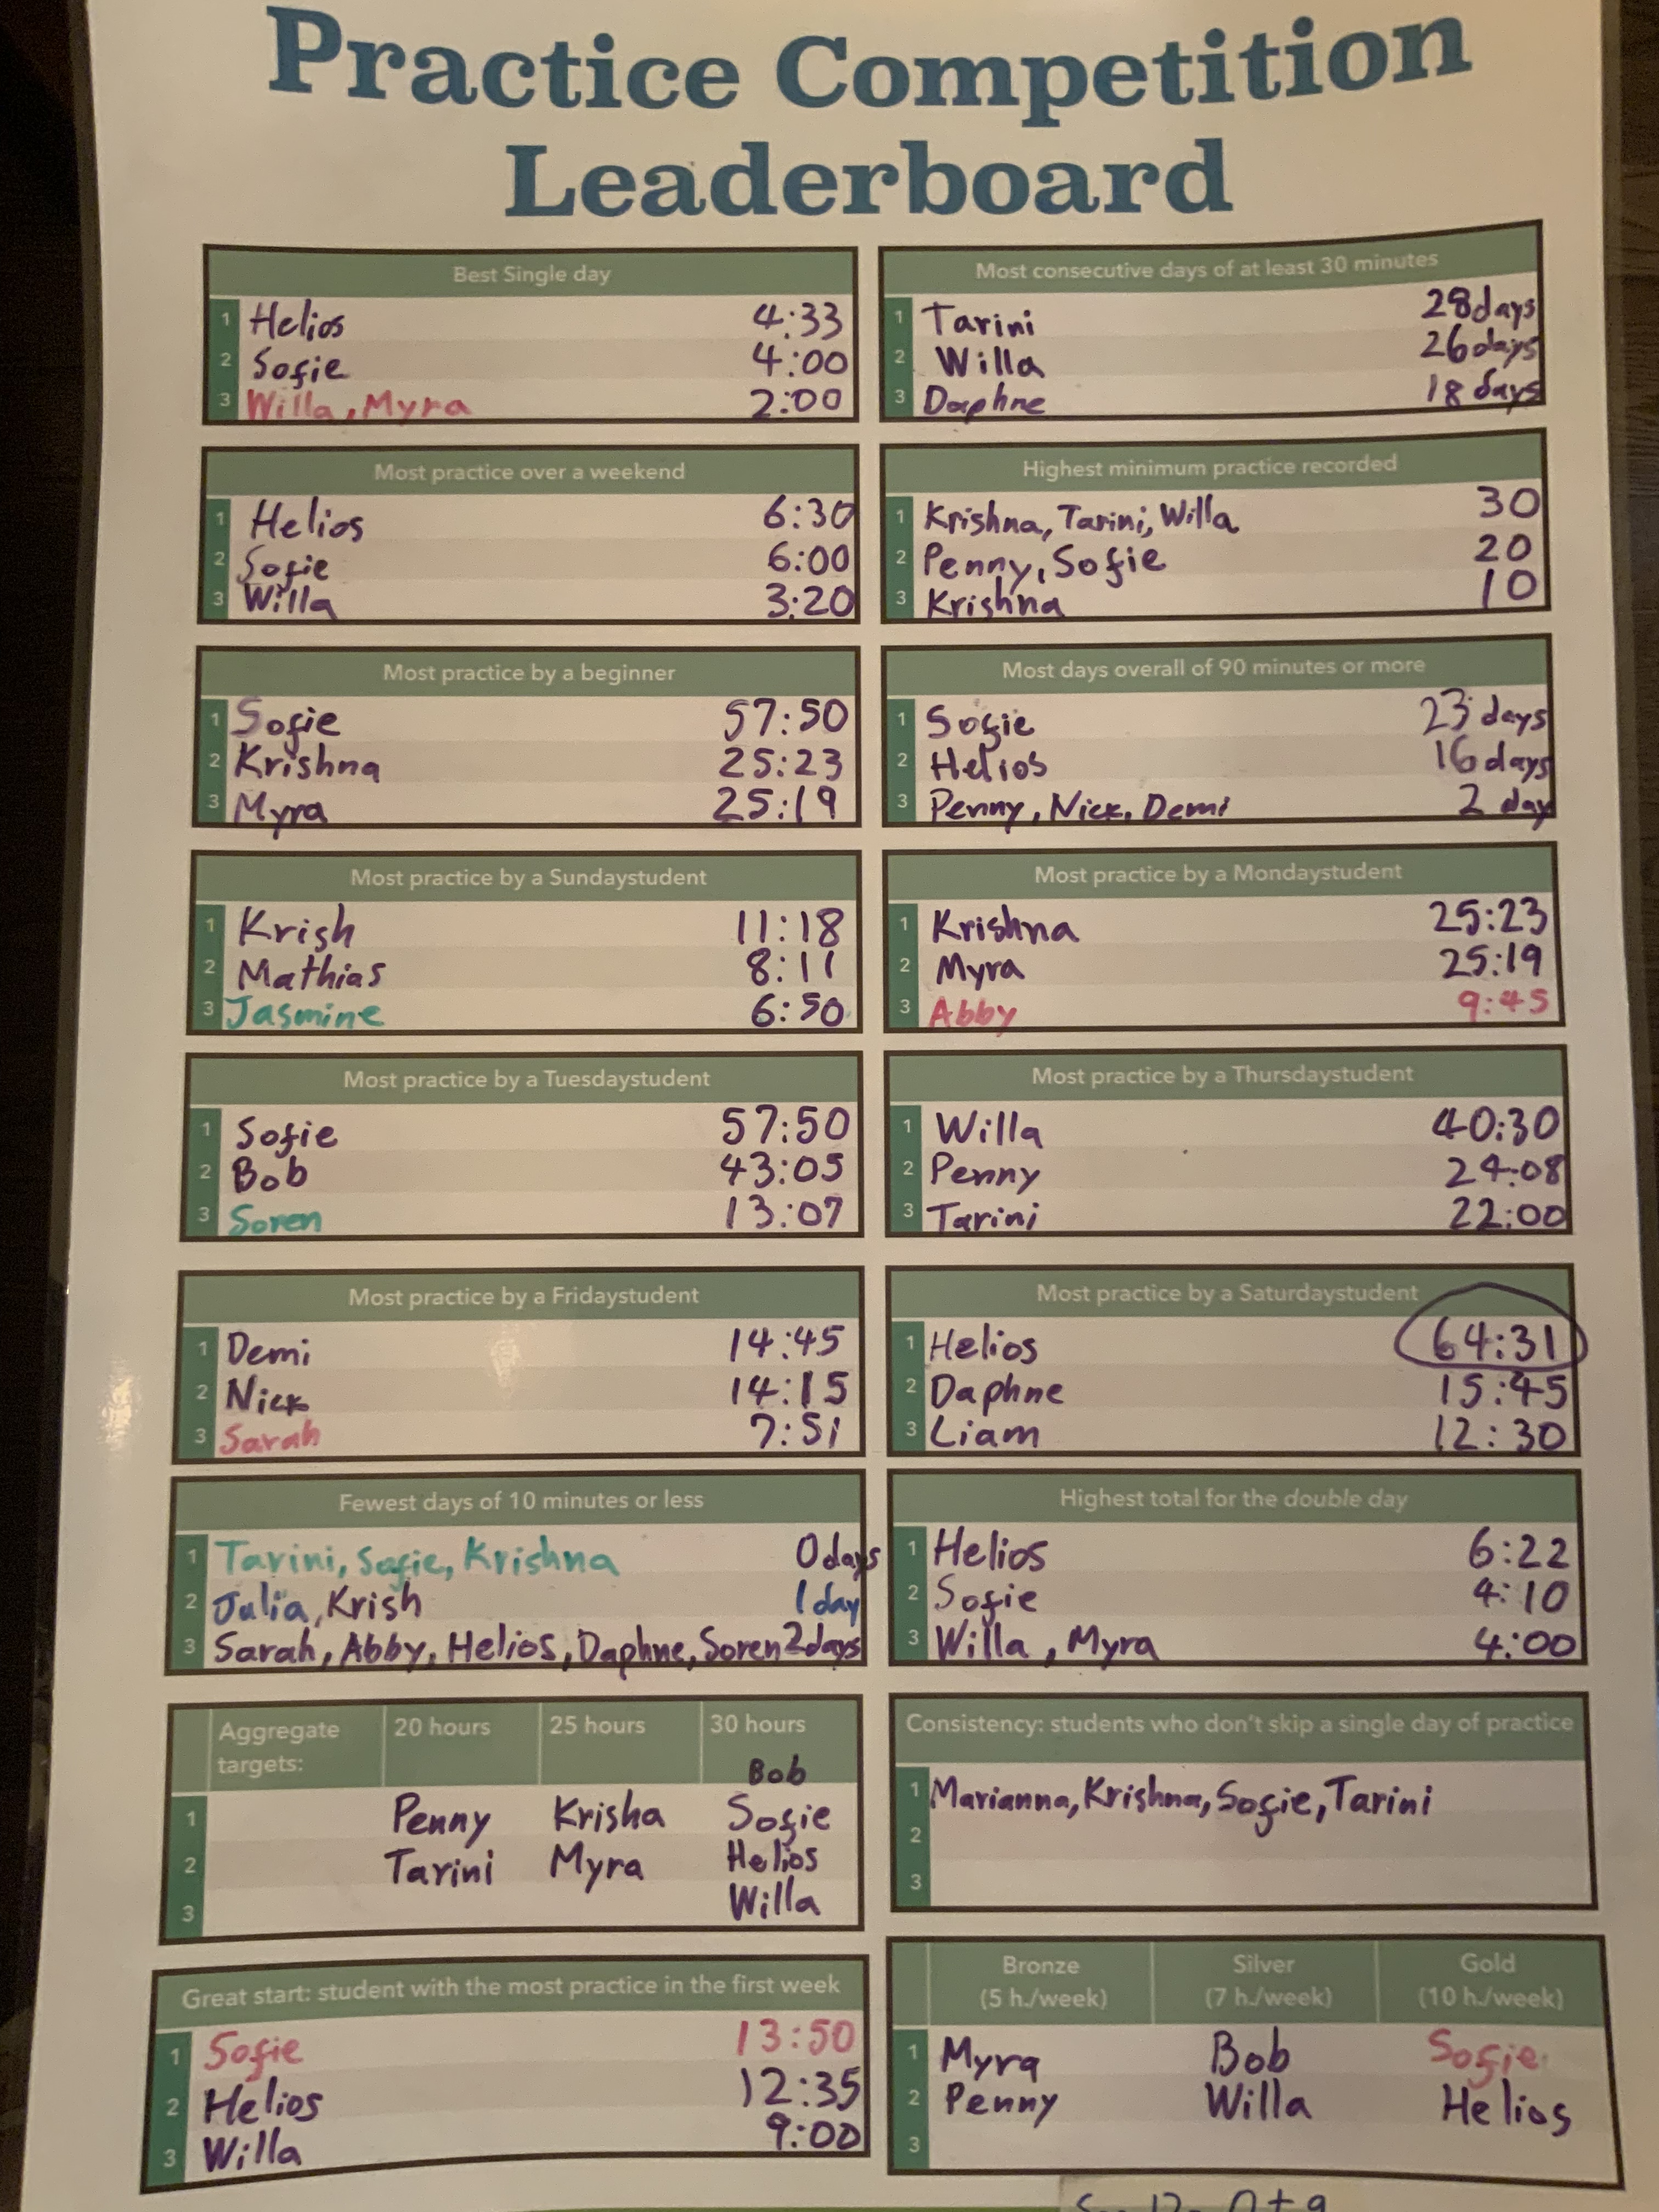 Practice Competition
Leaderboard
Best Single day
1 Helios 4:33
2 Sofie 4:00
3 Willa, Myra 2:00
Most consecutive days of at least 30 minutes
1 Tarini 28 days
2 Willa 26 days
3 Daphne 18 days
Most practice over a weekend
1 Helios 6:30
2 Sofie 6:00
3 Willa 3:20
Highest minimum practice recorded
1 Krishna, Tarini, Willa 30
2 Penny, Sofie 20
3 Krishna 10
Most practice by a beginner
1 Sofie 57:50
2 Krishna 25:23
3 Myra 25:19
Most days overall of 90 minutes or more
1 Sofie 23 days
2 Helios 16 days
3 Penny, Nick, Demi 2 day
Most practice by a Sundaystudent
1 Krish 11:18
2 Mathias 8:11
3 Jasmine 6:50
Most practice by a Mondaystudent
1 Krishna 25:23
2 Myra 25:19
3 Abby 9:45
Most practice by a Tuesdaystudent
1 Sofie 57:50
2 Bob 43:05
3 Soren 13:07
Most practice by a Thursdaystudent
1 Willa 40:30
2 Penny 24:08
3 Tarini 22:00
Most practice by a Fridaystudent
1 Demi 14:45
2 Nick 14:15
3 Sarah 7:51
Most practice by a Saturdaystudent
1 Helios 64:31
2 Daphne 15:45
3 Liam 12:30
Fewest days of 10 minutes or less
1 Tarini, Sofie, Krishna 0 days
2 Julia, Krish 1 day
3 Sarah, Abby, Helios, Daphne, Soren 2 days
Highest total for the double day
1 Helios 6:22
2 Sofie 4:10
3 Willa, Myra 4:00
Aggregate targets: 20 hours 25 hours 30 hours
Bob
1 Penny Krisha Sofie
2 Tarini Myra Helios
3 Willa
Consistency: students who don't skip a single day of practice
1 Marianna, Krishna, Sofie, Tarini
2
3
Great start: student with the most practice in the first week
1 Sofie 13:50
2 Helios 12:35
3 Willa 9:00
Bronze Silver Gold
(5 h./week) (7 h./week) (10 h./week)
1 Myra Bob Sofie
2 Penny Willa Helios
3